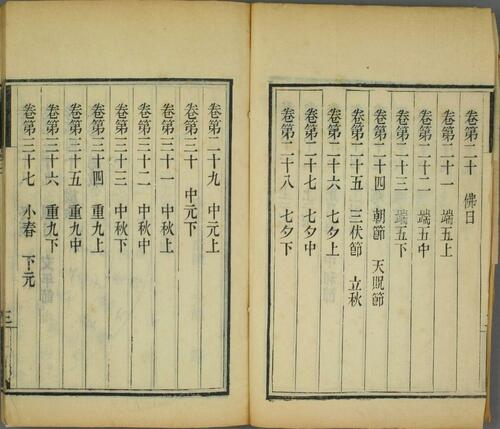 卷第二十 佛日
卷第二十一 端五上
卷第二十二 端五中
卷第二十三 端五下
卷第二十四 朝節 天貺節
卷第二十五 三伏節 立秋
卷第二十六 七夕上
卷第二十七 七夕中
卷第二十八 七夕下
卷第二十九 中元上
卷第三十 中元下
卷第三十一 中秋上
卷第三十二 中秋中
卷第三十三 中秋下
卷第三十四 重九上
卷第三十五 重九中
卷第三十六 重九下
卷第三十七 小春 下元
三